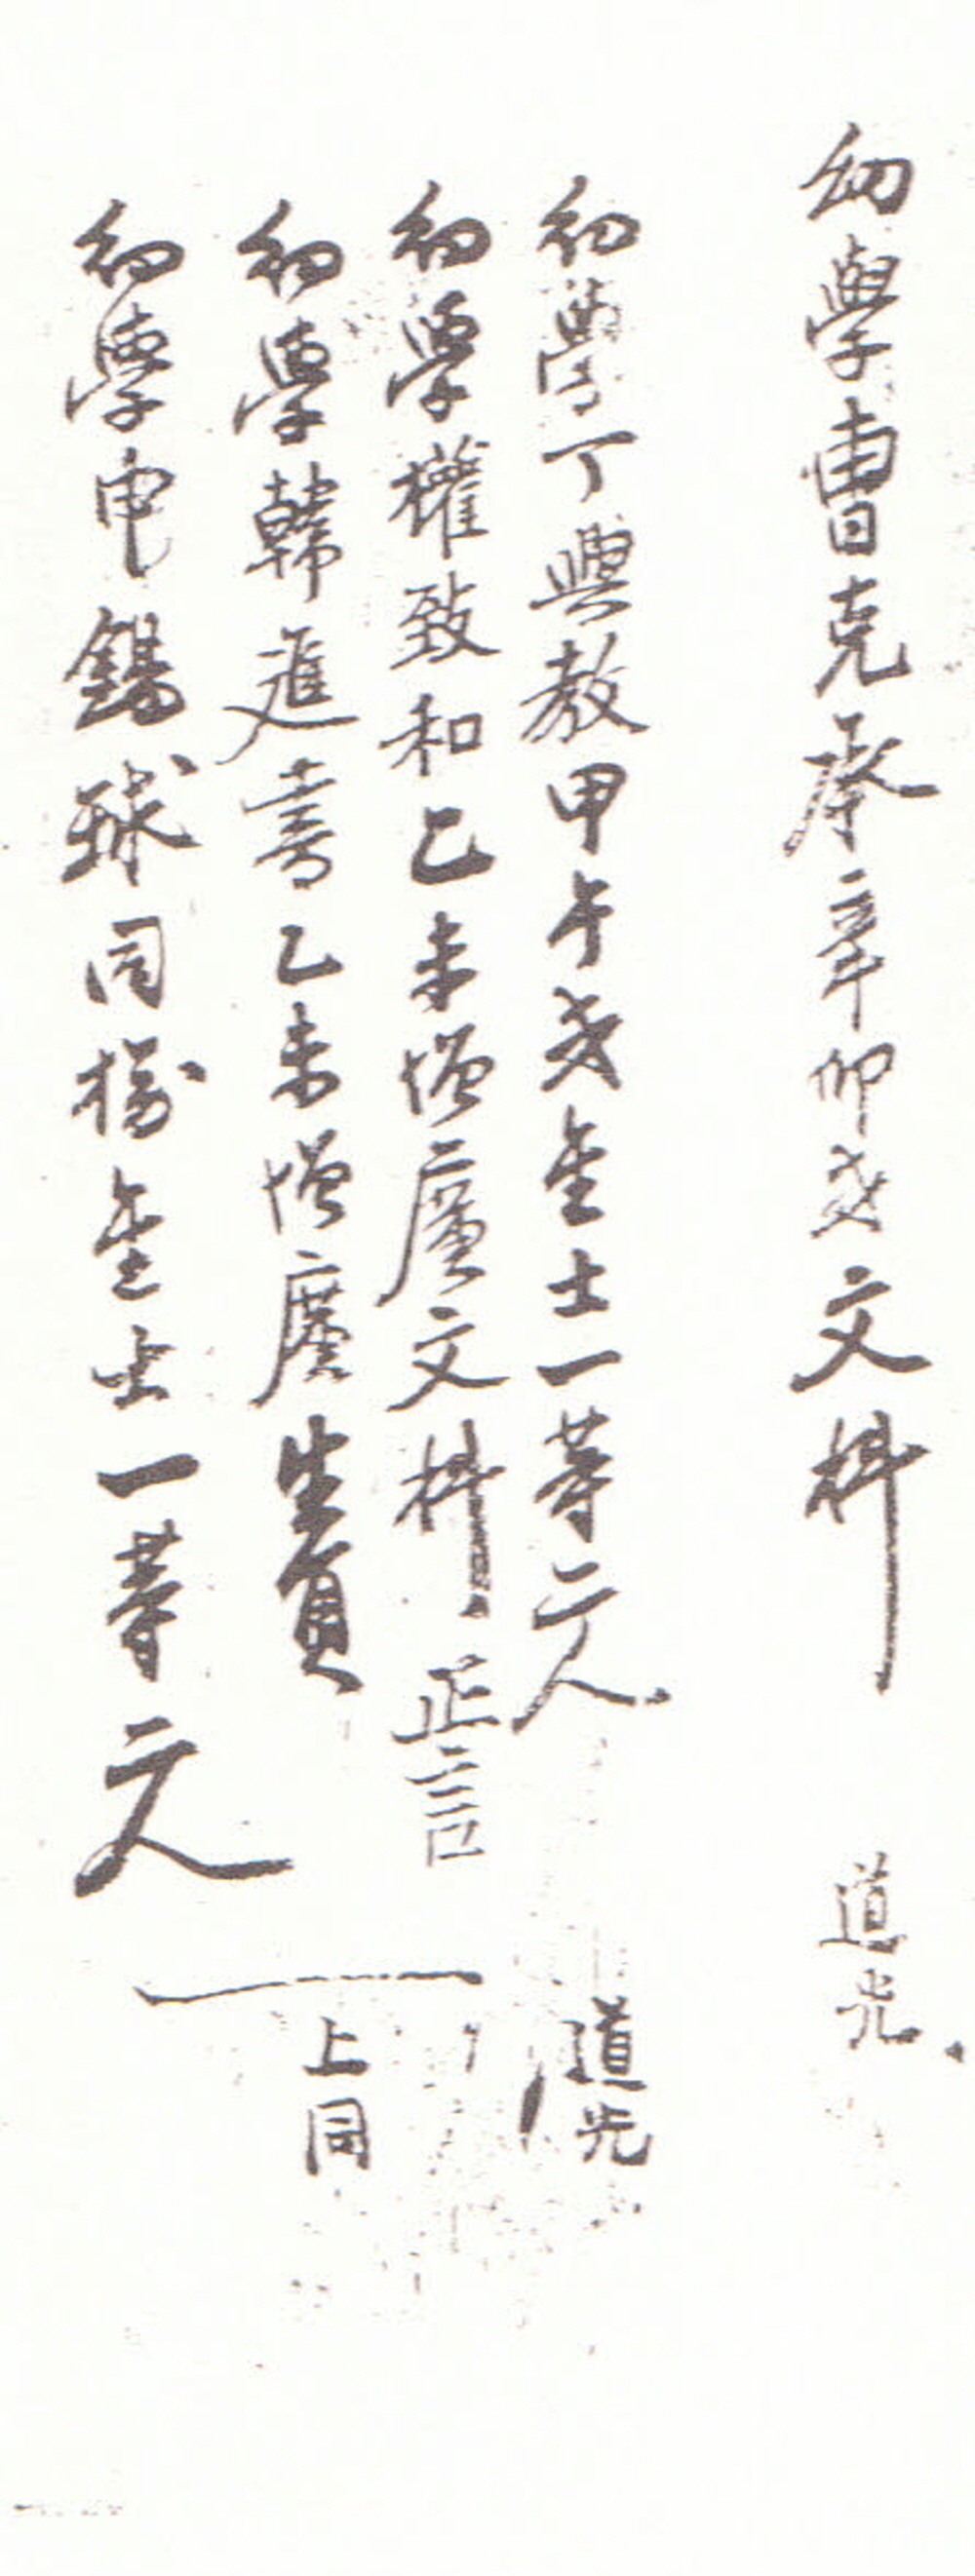 幼學曹克承辛卯式文科 道光
幼學丁興教甲午式進士一等二人 道光
幼學權致和乙未增廣文科 正言
幼學韓進書乙未增廣生員
幼學申錫球同榜進士一等二人
上同